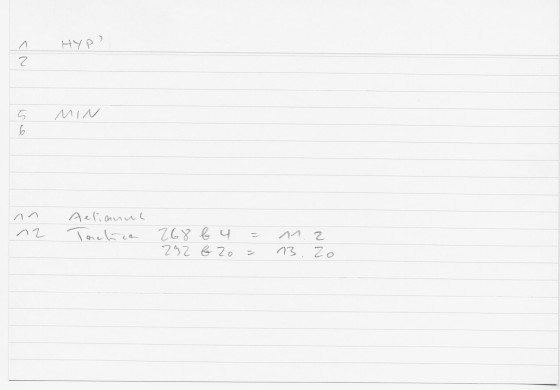 1 HYP'
2
5 MIN
6
11
12 Tactica 268 b 4 = 11 2
292 b 20 = 13. 20